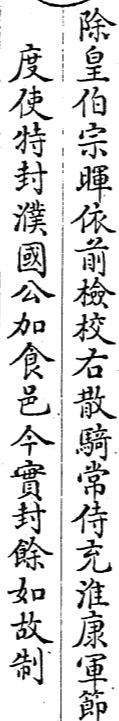 除皇伯宗暉依前檢校右散騎常侍充淮康軍節
度使特封濮國公加食邑今實封餘如故制